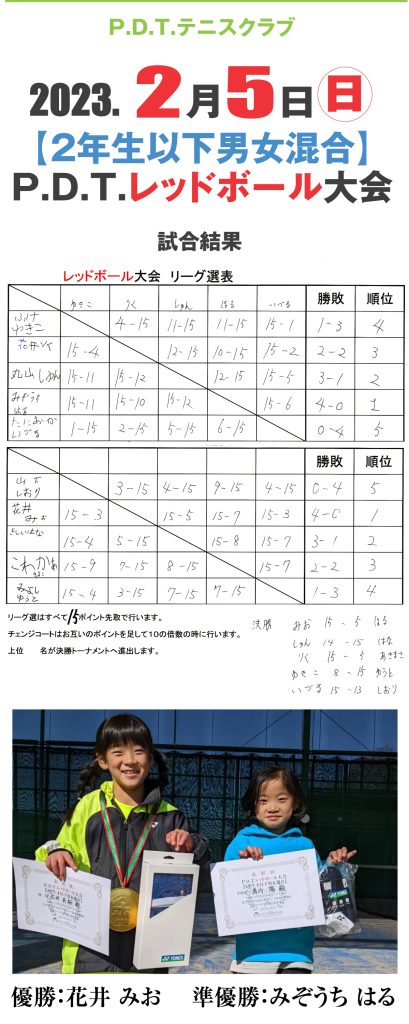 P.D.T.テニスクラブ
2023. 2月5日 日
【2年生以下男女混合】
P.D.T.レッドボール大会
試合結果
レッドボール大会 リーグ選表
ゆきこ りく しゅん はる いづる 勝敗 順位
ゆきこ 4-15 11-15 11-15 15-1 1-3 4
花井 りく 15-4 12-15 10-15 15-2 2-2 3
丸山 しゅん 15-11 15-12 12-15 15-5 3-1 2
みぞうち はる 15-11 15-10 15-12 15-6 4-0 1
いづる 1-15 2-15 5-15 6-15 0-4 5
勝敗 順位
山下 しおり 3-15 4-15 9-15 4-15 0-4 5
花井 みお 15-3 15-5 15-7 15-3 4-0 1
はな 15-4 5-15 15-8 15-7 3-1 2
15-9 7-15 8-15 15-7 2-2 3
みよし ゆうと 15-4 3-15 7-15 7-15 1-3 4
リーグ選はすべて15ポイント先取で行います。
チェンジコートはお互いのポイントを足して10の倍数の時に行います。
上位 名が決勝トーナメントへ進出します。
決勝 みお 15-5 はる
しゅん 14-15 はな
りく 15-5 あきまさ
ゆきこ 8-15 ゆうと
いづる 15-13 しおり
表彰状
P.D.T.レッドボール大会
YONEX
表彰状
P.D.T.レッドボール大会
YONEX
優勝:花井 みお 準優勝:みぞうち はる